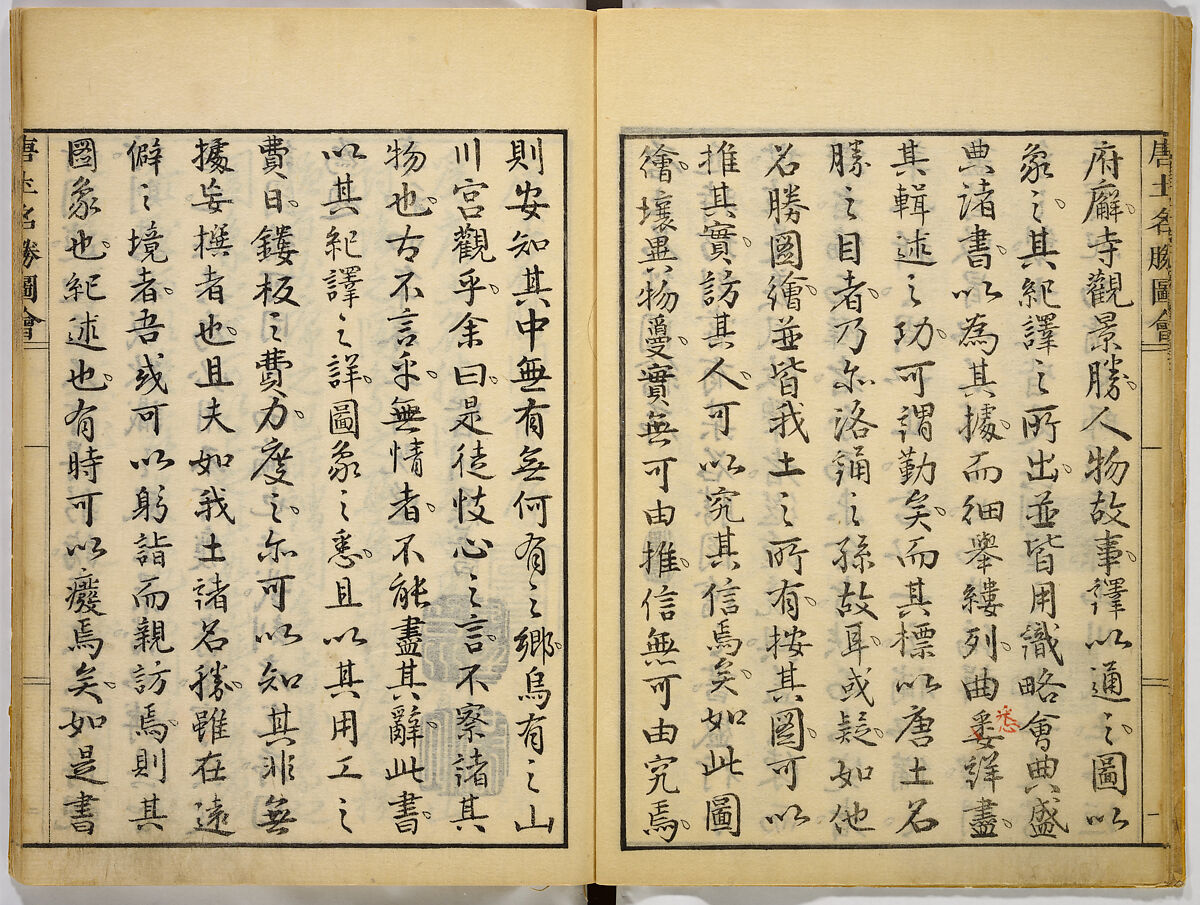 唐土名勝圖會
府廨寺觀景勝人物故事譯以通之圖以
象之其紀譯之所出並皆用識略會典盛
典諸書以為其據而細舉縷列曲委詳盡
悉
其輯述之功可謂勤矣而其標以唐土名
勝之目者乃亦洛誦之孫故耳或疑如他
名勝圖繪並皆我土之所有按其圖可以
推其實訪其人可以究其信焉矣如此圖
繪壤異物憂實無可由推信無可由究焉
則安知其中無有無何有之鄉烏有之山
川宮觀乎余曰是徒忮心之言不察諸其
物也古不言乎無情者不能盡其辭此書
以其紀譯之詳圖象之悉且以其用工之
費日鏤板之費力度之亦可以知其非無
據妄撰者也且夫如我土諸名勝雖在遠
僻之境者吾或可以躬詣而親訪焉則其
圖象也紀述也有時可以癈焉矣如是書
唐土名勝圖會